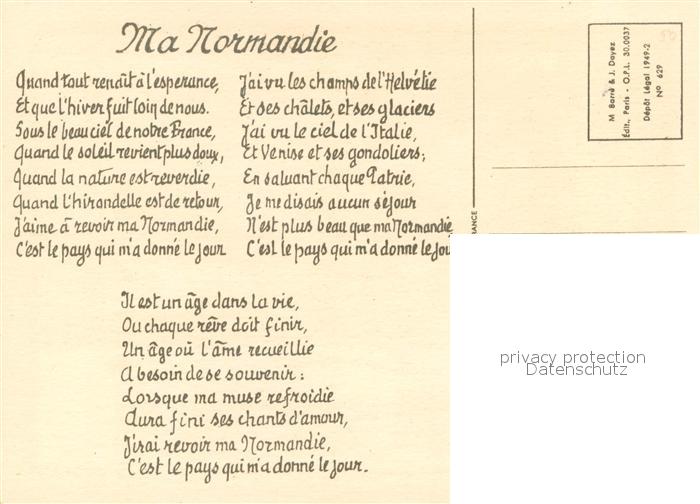 Ma Normandie
Quand tout renaît à l'esperance,
Et que l'hiver fuit loin de nous.
Sous le beau ciel de notre France,
Quand le soleil revient plus doux,
Quand la nature est reverdie,
Quand l'hirondelle est de retour,
J'aime à revoir ma Normandie,
C'est le pays qui m'a donné le jour
J'ai vu les champs de l'Helvétie
Et ses châlets, et ses glaciers
J'ai vu le ciel de l'Italie,
Et Venise et ses gondoliers;
En saluant chaque Patrie,
Je me disais aucun séjour
N'est plus beau que ma Normandie
C'est le pays qui m'a donné le jou
Il est un âge dans la vie,
Ou chaque rêve doit finir,
Un âge où l'âme recueillie
A besoin de se souvenir:
Lorsque ma muse refroidie
Aura fini ses chants d'amour,
J'irai revoir ma Normandie,
C'est le pays qui m'a donné le jour.
M Barré & J. Dayez
Édit., Paris - O.P.L. 30.0037
Dépôt Légal 1949-2
No 629
50
RANCE
privacy protection
Datenschutz